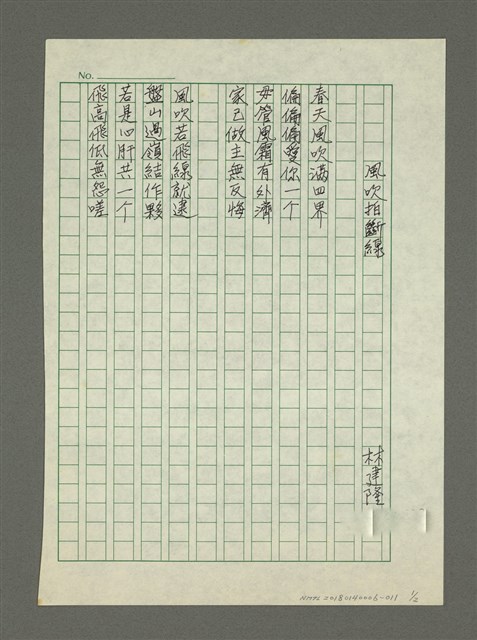 No.
風吹拍斷線
林建隆
春天風吹滿四界
偏偏偏愛你一个
毋管風霜有外濟
家己做主無反悔
風吹若飛線就逮
盤山過嶺結作夥
若是心肝共一个
飛高飛低無怨嗟
NMTL20180140006-011 1/2